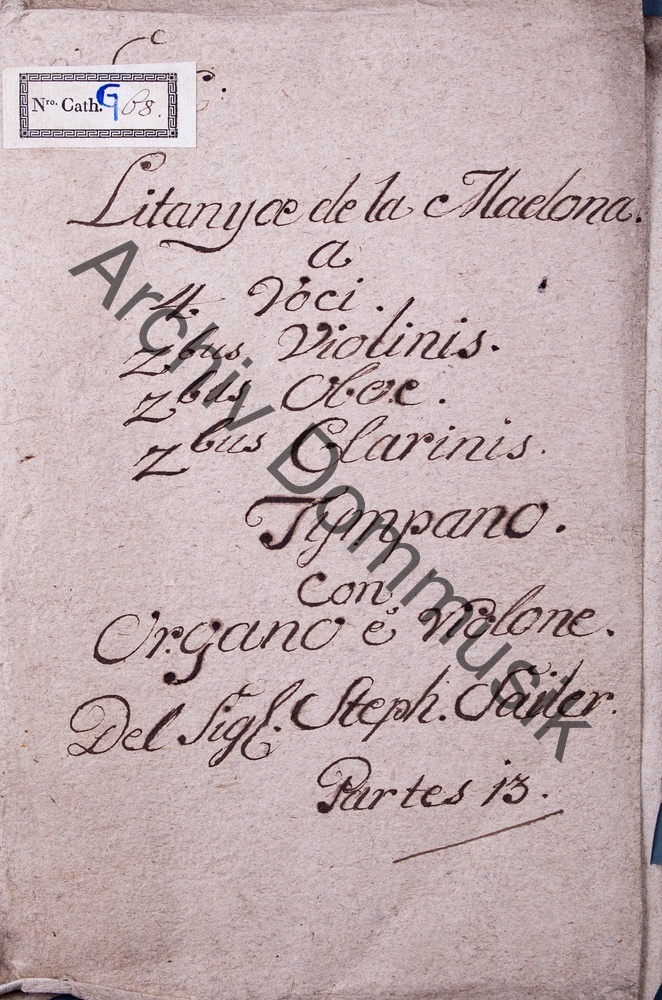 Nro. Cath. G 68.
Litanyæ de la Madona.
a
4 Voci.
2bus Violinis.
2bus Oboe.
2bus Clarinis.
Tympano.
con
Organo e Violone.
Del Sigl. Steph. Sailer.
Partes 13.
Archiv Dommusik